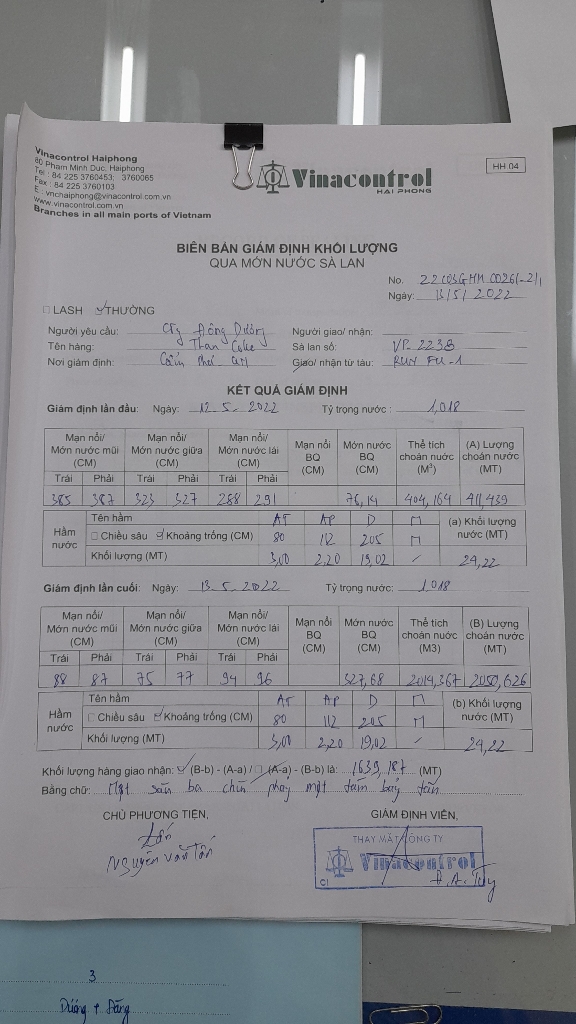 Vinacontrol Haiphong
80 Pham Minh Duc, Haiphong
Tel : 84 225 3760453; 3760065
Fax : 84 225 3760103
E : vnchaiphong@vinacontrol.com.vn
www.vinacontrol.com.vn
Branches in all main ports of Vietnam
Vinacontrol
HAI PHONG
HH 04
BIÊN BẢN GIÁM ĐỊNH KHỐI LƯỢNG
QUA MỚN NƯỚC SÀ LAN
No.
Ngày: 13/5/2022
LASH THƯỜNG
Người yêu cầu: Cty Đông Dương Người giao/ nhận:
Tên hàng: Than Coke Sà lan số: VP-2238
Nơi giám định: Giao/ nhận từ tàu: RUN FU-1
KẾT QUẢ GIÁM ĐỊNH
Giám định lần đầu: Ngày: 12-5-2022 Tỷ trọng nước : 1,018
Mạn nổi/ Mớn nước mũi (CM) Mạn nổi/ Mớn nước giữa (CM) Mạn nổi/ Mớn nước lái (CM) Mạn nổi BQ (CM) Mớn nước BQ (CM) Thể tích choán nước (M³) (A) Lượng choán nước (MT)
Trái Phải Trái Phải Trái Phải
385 387 323 327 288 291 76,14 404,164 411,439
Hầm nước Tên hầm AT AP D П (a) Khối lượng nước (MT)
Chiều sâu Khoảng trống (CM) 80 112 205 П
Khối lượng (MT) 3,00 2,20 19,02 24,22
Giám định lần cuối: Ngày: 13-5-2022 Tỷ trọng nước: 1,018
Mạn nổi/ Mớn nước mũi (CM) Mạn nổi/ Mớn nước giữa (CM) Mạn nổi/ Mớn nước lái (CM) Mạn nổi BQ (CM) Mớn nước BQ (CM) Thể tích choán nước (M3) (B) Lượng choán nước (MT)
Trái Phải Trái Phải Trái Phải
88 87 75 77 94 96 327,68 2014,367 2050,626
Hầm nước Tên hầm AT AP D П (b) Khối lượng nước (MT)
Chiều sâu Khoảng trống (CM) 80 112 205 П
Khối lượng (MT) 3,00 2,20 19,02 24,22
Khối lượng hàng giao nhận: (B-b) - (A-a) / (A-a) - (B-b) là: 1639,187 (MT)
Bằng chữ: Một sáu ba chín phẩy một tám bảy tấn
CHỦ PHƯƠNG TIỆN, GIÁM ĐỊNH VIÊN,
THAY MẶT CÔNG TY
Vinacontrol
CI
Nguyễn Văn Tấn
3
Dương + Đăng